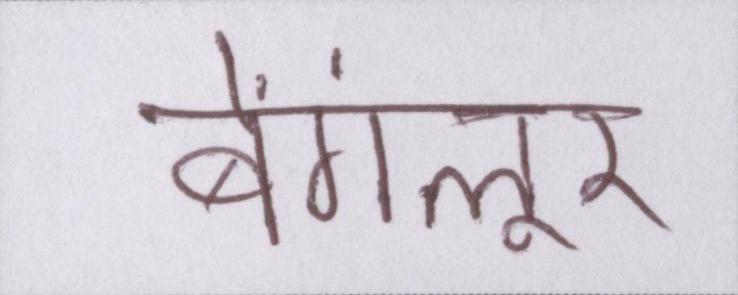 बेंगंलूर